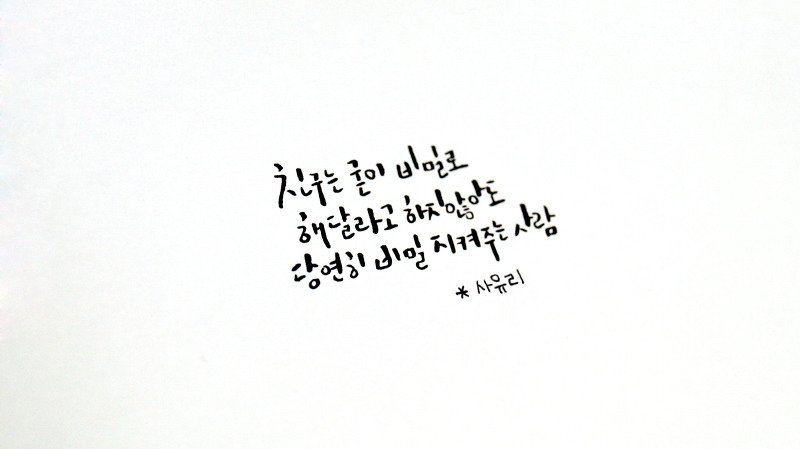 친구는 굳이 비밀로
해달라고 하지않아도
당연히 비밀 지켜주는 사람
* 사유리